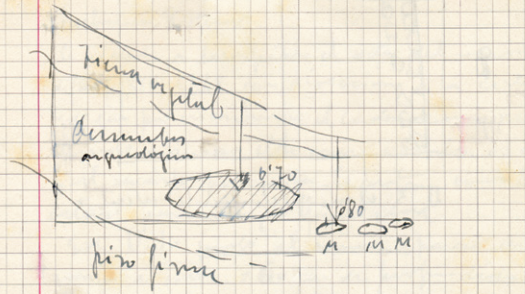 tierra vegetal
derrumbes
arqueológico
0'70
0'80
M M M
piso firme